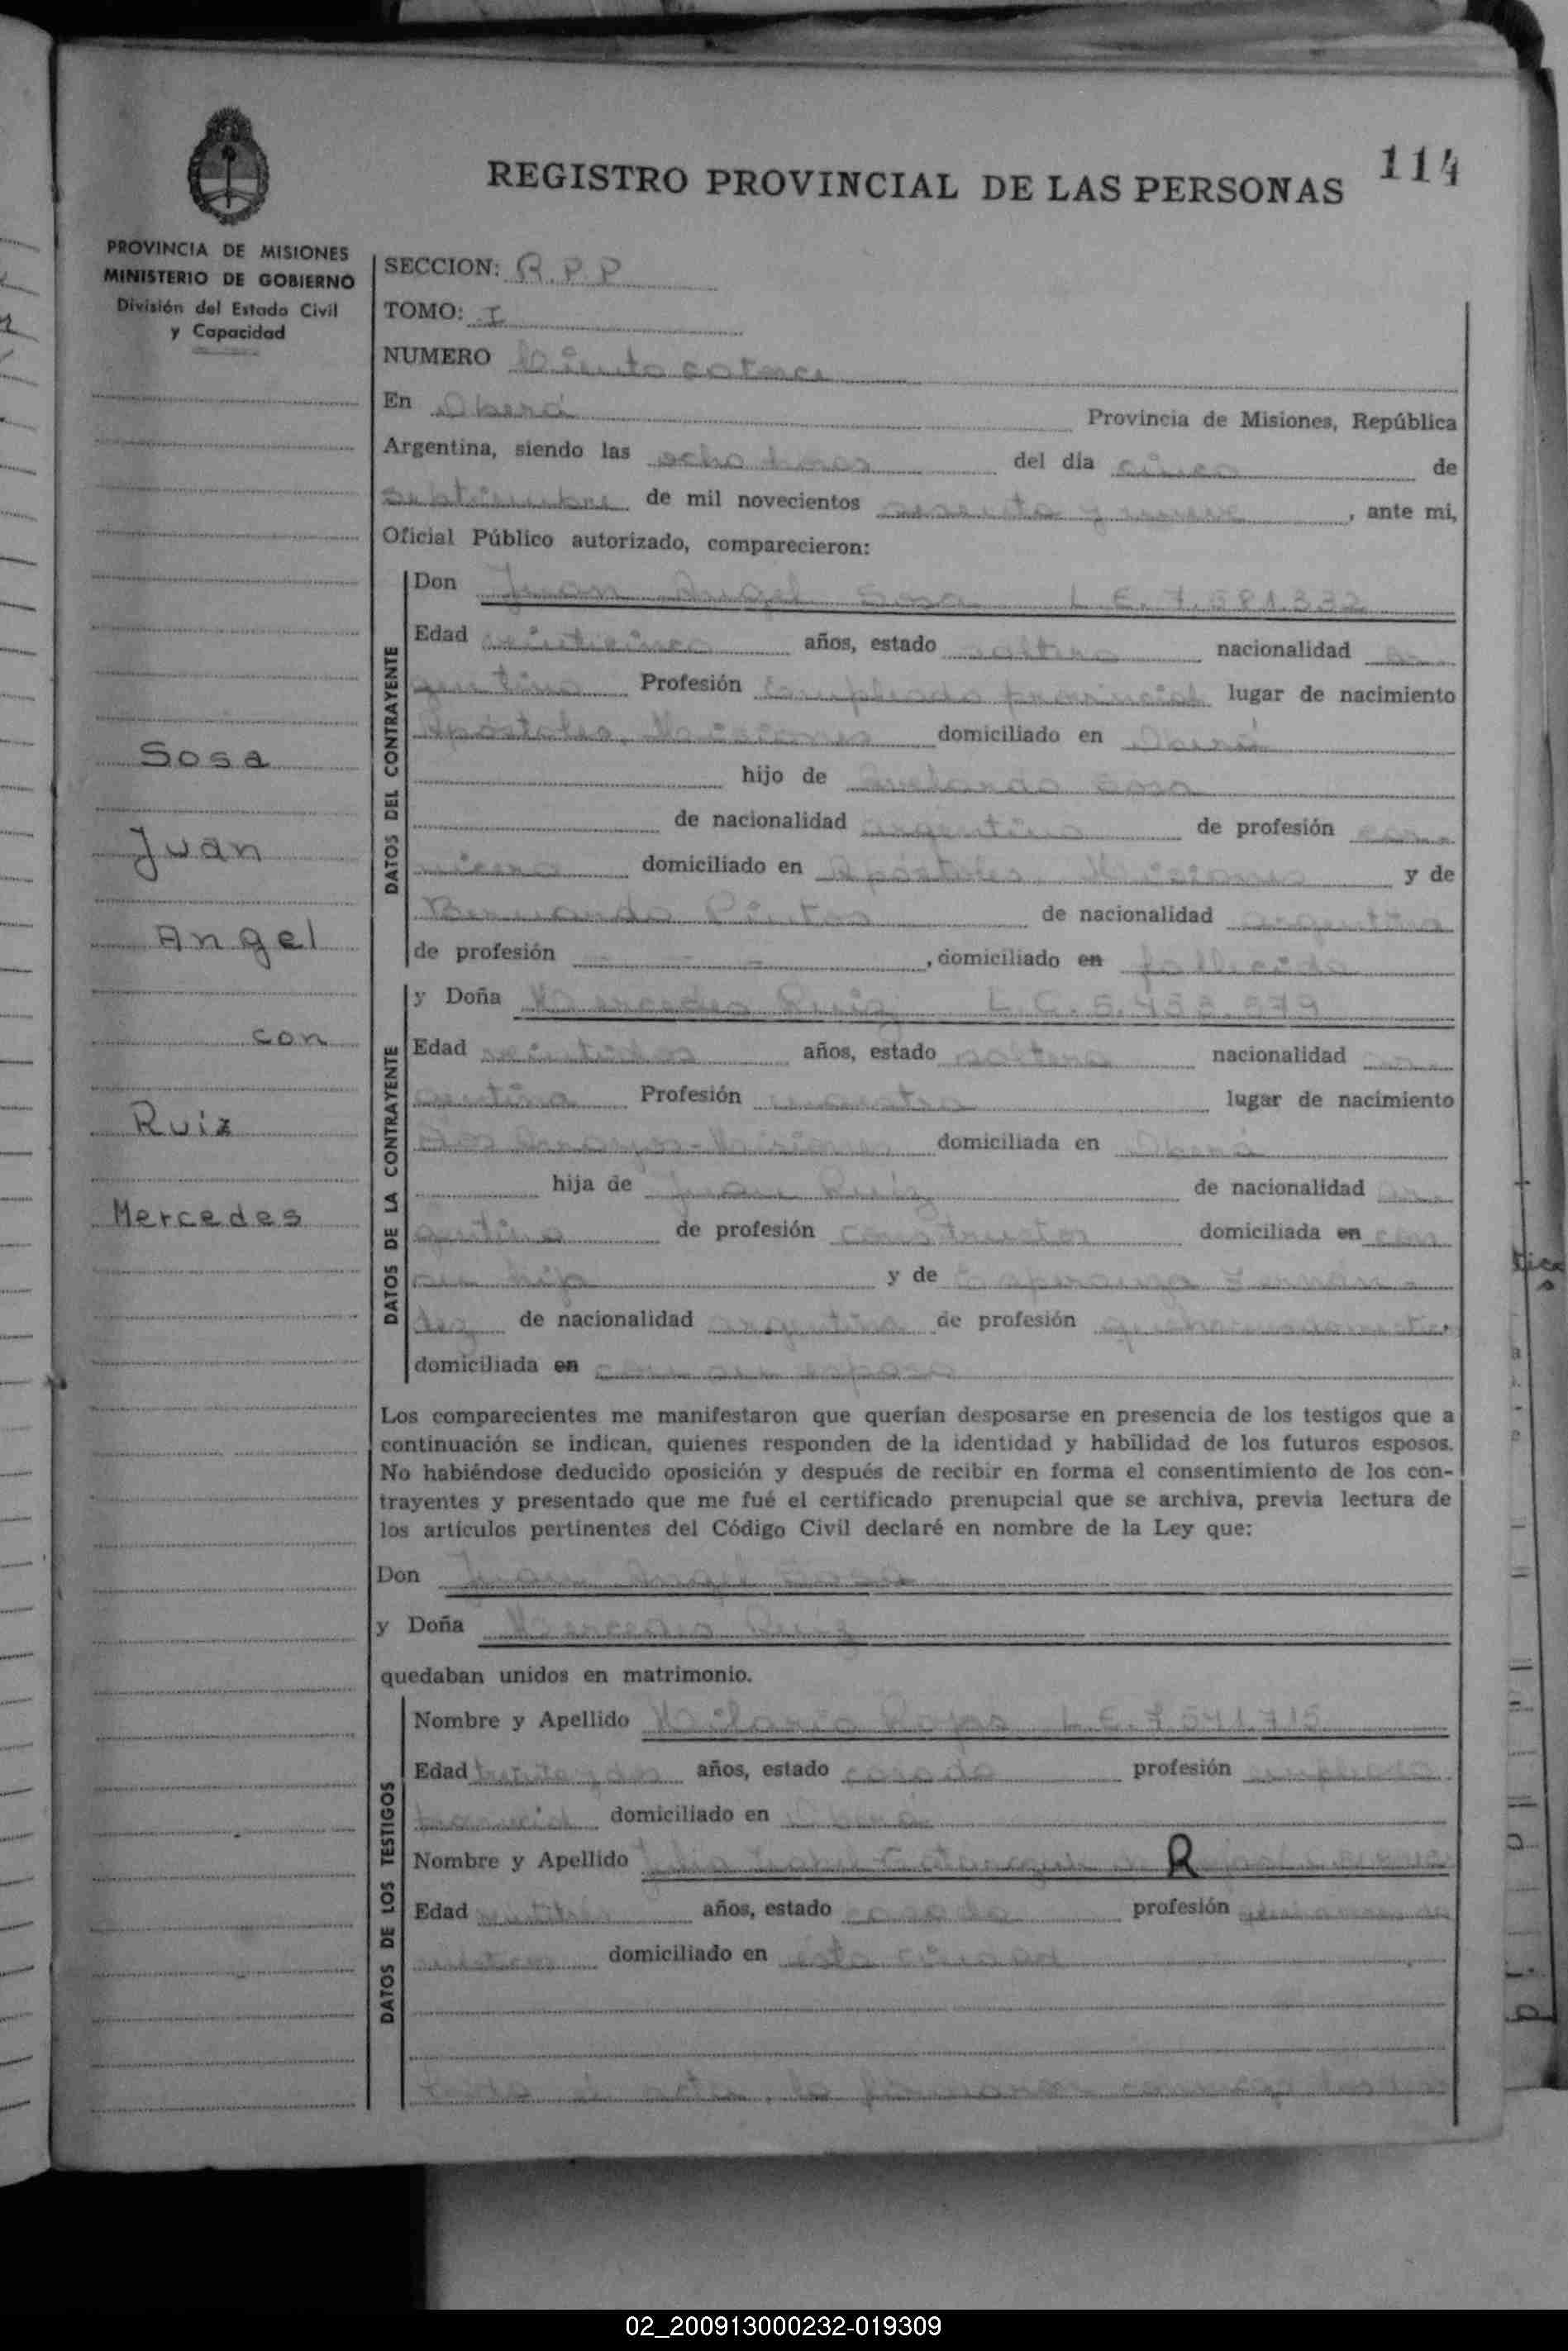 114
REGISTRO PROVINCIAL DE LAS PERSONAS
PROVINCIA DE MISIONES
MINISTERIO DE GOBIERNO
División del Estado Civil
y Capacidad
Sosa
Juan
Angel
con
Ruiz
Mercedes
SECCION: R.P.P
TOMO: I
NUMERO Ciento catorce
En Oberá Provincia de Misiones, República
Argentina, siendo las ocho horas del día cinco de
Septiembre de mil novecientos sesenta y nueve, ante mi,
Oficial Público autorizado, comparecieron:
DATOS DEL CONTRAYENTE
Don Juan Angel Sosa L.E. 7.581.332
Edad veinticinco años, estado soltero nacionalidad ar-
gentino Profesión empleado provincial lugar de nacimiento
Apóstoles, Misiones domiciliado en Oberá
hijo de Sosa
de nacionalidad argentino de profesión
domiciliado en Apóstoles Misiones y de
Bernarda Pintos de nacionalidad argentina
de profesión - - -, domiciliado en fallecida
DATOS DE LA CONTRAYENTE
y Doña Mercedes Ruiz L.C. 5.455.579
Edad veintidos años, estado soltera nacionalidad ar-
gentina Profesión maestra lugar de nacimiento
Misiones domiciliada en Oberá
hija de Juan Ruiz de nacionalidad ar-
gentina de profesión constructor domiciliada en con
su hija y de Esperanza Fernán-
dez de nacionalidad argentina de profesión
domiciliada en con su esposo
Los comparecientes me manifestaron que querían desposarse en presencia de los testigos que a
continuación se indican, quienes responden de la identidad y habilidad de los futuros esposos.
No habiéndose deducido oposición y después de recibir en forma el consentimiento de los con-
trayentes y presentado que me fué el certificado prenupcial que se archiva, previa lectura de
los artículos pertinentes del Código Civil declaré en nombre de la Ley que:
Don Juan Angel Sosa
y Doña Mercedes Ruiz
quedaban unidos en matrimonio.
DATOS DE LOS TESTIGOS
Nombre y Apellido Hilario Rojas L.E. 7.541.715
Edad treinta y dos años, estado casado profesión empleado
provincial domiciliado en Oberá
Nombre y Apellido R
Edad años, estado casada profesión
domiciliado en esta ciudad
Leída el acta, la firmaron conmigo
02_200913000232-019309